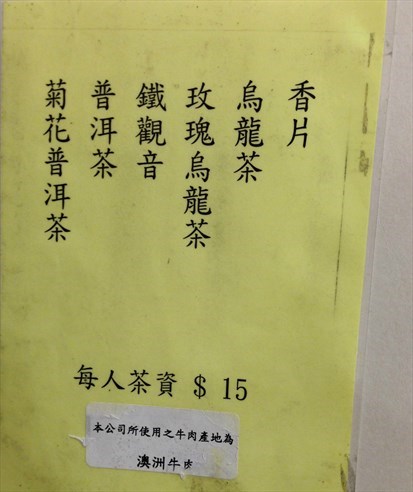 香片
烏龍茶
玫瑰烏龍茶
鐵觀音
普洱茶
菊花普洱茶
每人茶資 $ 15
本公司所使用之牛肉產地為
澳洲牛肉